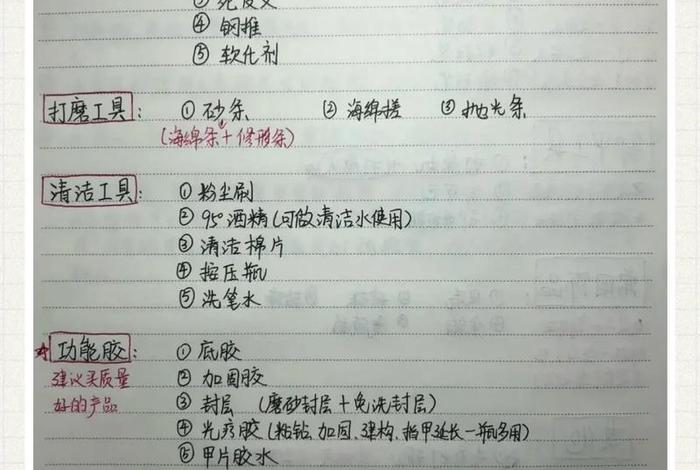 ③ 死皮叉
④ 钢推
⑤ 软化剂
打磨工具: ① 砂条 ② 海绵搓 ③ 抛光条
(海绵条+修形条)
清洁工具: ① 粉尘刷
② 95°酒精(可做清洁水使用)
③ 清洁棉片
④ 按压瓶
⑤ 洗笔水
★功能胶: ① 底胶
建议买质量 ② 加固胶
好的产品 ③ 封层 (磨砂封层+免洗封层)
④ 光疗胶(粘钻、加固、建构、指甲延长一瓶多用)
⑤ 甲片胶水